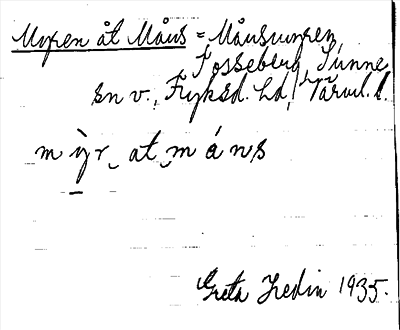 Myren åt Måns = Månsmyren
Fosseberg, Sunne
sn v., Fryksd. hd, Värml. l.
m y̆r‿ at‿m á n s
Greta Hedin 1935.